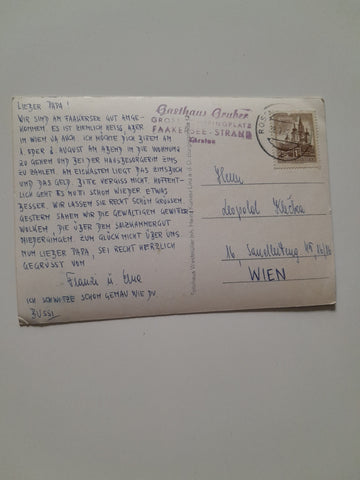 LIEBER PAPA!
WIR SIND AM FAAKERSEE GUT ANGE-
KOMMEN. ES IST ZIEMLICH HEISS ABER
IN WIEN JA AUCH. ICH MÖCHTE DICH BITTEN AM
ODER 6. AUGUST AM ABEND IN DIE WOHNUNG
ZU GEHEN UND BEI DER HAUSBESORGERIN ZINS
ZU ZAHLEN. AM EISKASTEN LIEGT DAS ZINSBUCH
UND DAS GELD. BITTE VERGISS NICHT. HOFFENT-
LICH GEHT ES MUTI SCHON WIEDER ETWAS
BESSER. WIR LASSEN SIE RECHT SCHÖN GRÜSSEN.
GESTERN SAHEN WIR DIE GEWALTIGEN GEWITTER
WOLKEN, DIE ÜBER DEM SALZKAMMERGUT
NIEDERGINGEN ZUM GLÜCK NICHT ÜBER UNS
NUN LIEBER PAPA, SEI RECHT HERZLICH
GEGRÜSST VOM
Franzi u.
ICH SCHWITZE SCHON GENAU WIE DU
BUSSI
Gasthaus Gruber
FAAKERSEE-STRAND
Kärnten
Herrn
Leopold
16. Sandleiteng.
WIEN